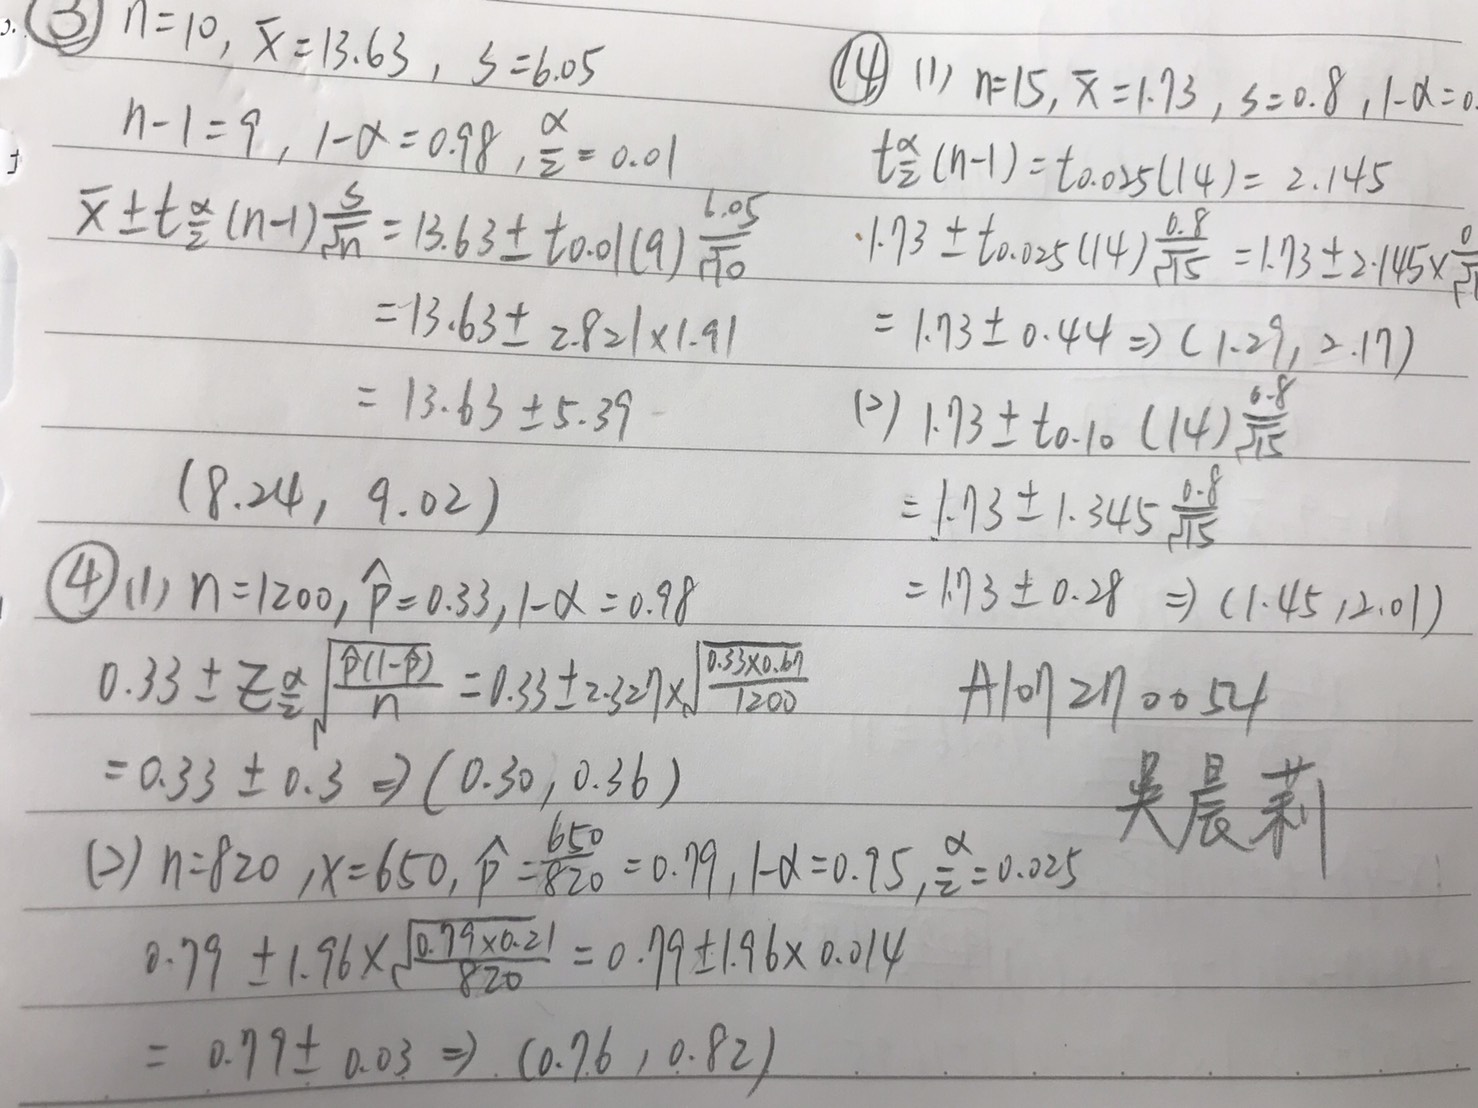 ③ n=10, x̄=13.63, s=6.05
n-1=9, 1-α=0.98, α/2=0.01
x̄±tα/2(n-1)s/√n=13.63±t0.01(9)6.05/√10
=13.63±2.821×1.91
=13.63±5.39
(8.24, 9.02)
④(1) n=1200, p̂=0.33, 1-α=0.98
0.33±Zα/2√p̂(1-p̂)/n=0.33±2.327×√0.33×0.67/1200
=0.33±0.3⇒(0.30, 0.36)
(2) n=820, x=650, p̂=650/820=0.79, 1-α=0.95, α/2=0.025
0.79±1.96×√0.79×0.21/820=0.79±1.96×0.014
=0.79±0.03⇒(0.76, 0.82)
⑭ (1) n=15, x̄=1.73, s=0.8, 1-α=0.
tα/2(n-1)=t0.025(14)=2.145
1.73±t0.025(14)0.8/√15=1.73±2.145×0/√1
=1.73±0.44⇒(1.29, 2.17)
(2) 1.73±t0.10(14)0.8/√15
=1.73±1.345 0.8/√15
=1.73±0.28⇒(1.45, 2.01)
A107270054
吳晨莉